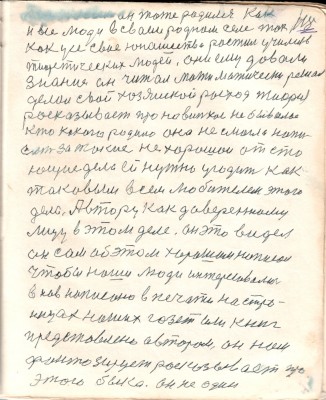 он тоже родился Как
и все люди в своим родном селе так
как уже свое юнашество растил учился
теоретических людей, они ему довали
знание он читал мотоматически решал
делал свой хозяйский росход творил
росказывает про новинках не бывалое
кто какого родило она не смогла напи-
за токое не хорошой от сто
дела ей нужно угодит как
токовым всем любителем этого
дела, Автору как доверенному
лицу в этом деле. он это видел
он сам об этом хорошим написал
чтобы наши люди интересовалы
в ков написано в печати на стра-
ницах наших гозет или книг
предстовлено автором, он нам
фантозирует росказывает про
этого быка. он не один